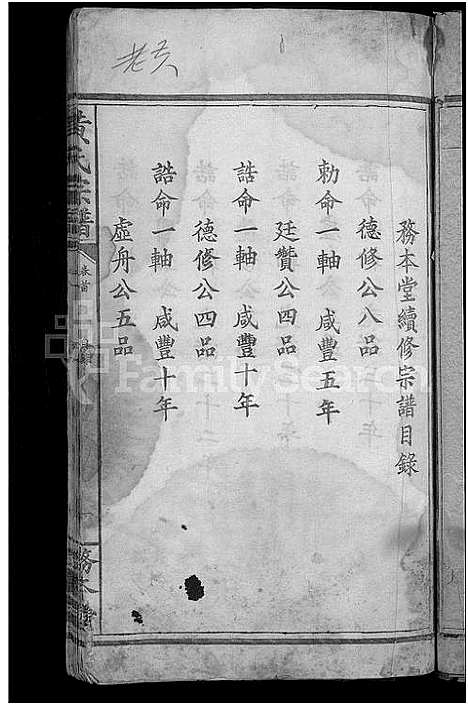 老亥
務本堂續修宗譜目錄
德修公八品
勅命一軸 咸豐五年
廷贊公四品
誥命一軸 咸豐十年
德修公四品
誥命一軸 咸豐十年
虛舟公五品
黃氏宗譜
卷首
目錄
務本堂
FamilySearch